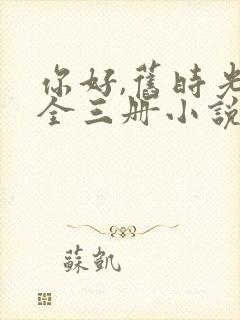 你好,舊時光
全三册小說
蘇凱